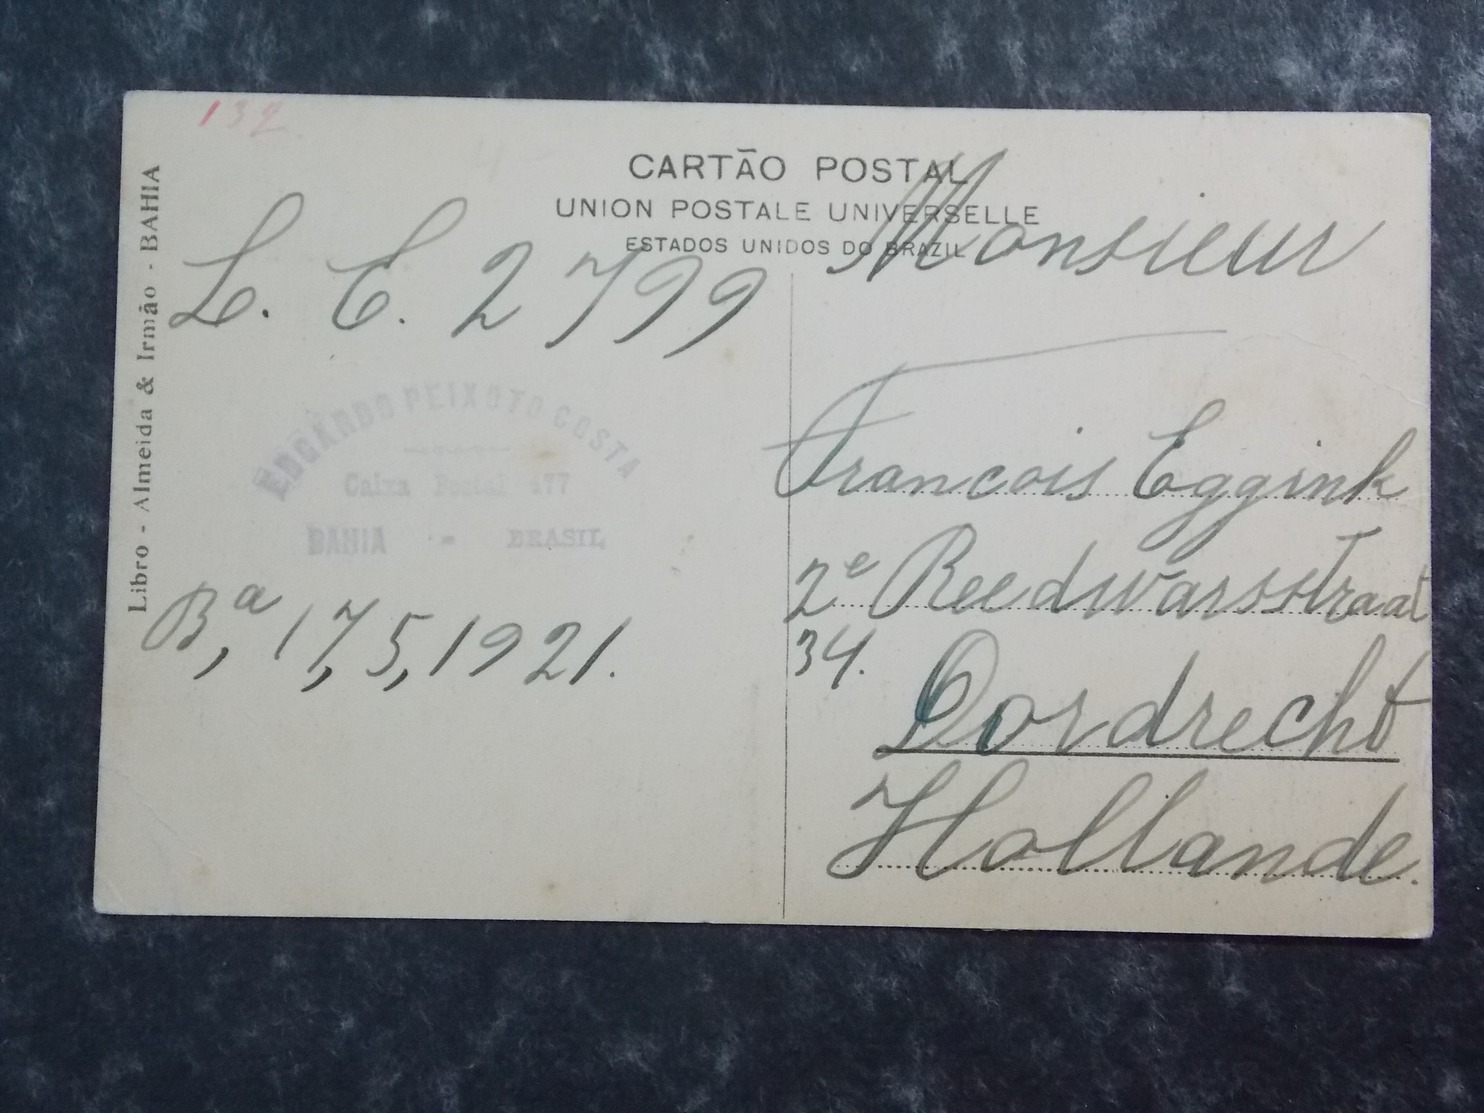 132
CARTÃO POSTAL
UNION POSTALE UNIVERSELLE
ESTADOS UNIDOS DO BRAZIL
Libro - Almeida & Irmão - BAHIA
L. C. 2799
EDGARDO PEIXOTO COSTA
Caixa Postal 477
BAHIA - BRASIL
Bª, 17,5,1921.
Monsieur
Francois Eggink
2e Reedwarsstraat
34.
Dordrecht
Hollande.